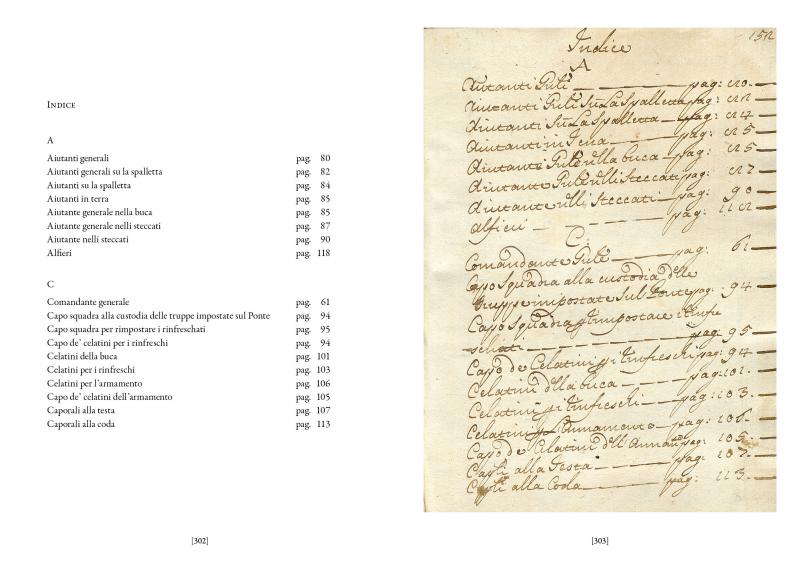 INDICE
A
Aiutanti generali pag. 80
Aiutanti generali su la spalletta pag. 82
Aiutanti su la spalletta pag. 84
Aiutanti in terra pag. 85
Aiutante generale nella buca pag. 85
Aiutante generale nelli steccati pag. 87
Aiutante nelli steccati pag. 90
Alfieri pag. 118
C
Comandante generale pag. 61
Capo squadra alla custodia delle truppe impostate sul Ponte pag. 94
Capo squadra per rimpostare i rinfreschati pag. 95
Capo de' celatini per i rinfreschi pag. 94
Celatini della buca pag. 101
Celatini per i rinfreschi pag. 103
Celatini per l'armamento pag. 106
Capo de' celatini dell'armamento pag. 105
Caporali alla testa pag. 107
Caporali alla coda pag. 113
[302]
Indice
A
Aiutanti Gnli pag:
Aiutanti Gnli su La Spalletta pag:
Aiutanti su La Spalletta pag:
Aiutanti in Terra pag:
Aiutante Gnle nella buca pag:
Aiutante Gnle nelli Steccati pag:
Aiutante nelli Steccati pag: 90
Alfieri pag:
C:
Comandante Gnle pag: 61.
Capo Squadra alla custodia delle
Truppe impostate sul Ponte pag: 94
Capo Squadra
pag: 95
Capo de Celatini p i Rinfreschi pag: 94.
Celatini della buca pag: 101.
Celatini p i Rinfreschi pag: 103.
Celatini p Armamento pag: 106.
Capo de Celatini dell' pag: 105.
Capli alla Testa pag: 107.
Capli alla Coda pag: 113.
[303]